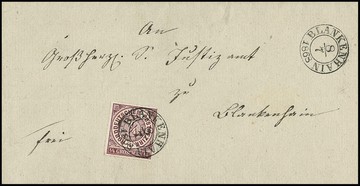 An
Großherz. S. Justizamt
zu
Blankenhain
frei
BLANKENHAIN
8/7
1868
BLANKENHAIN